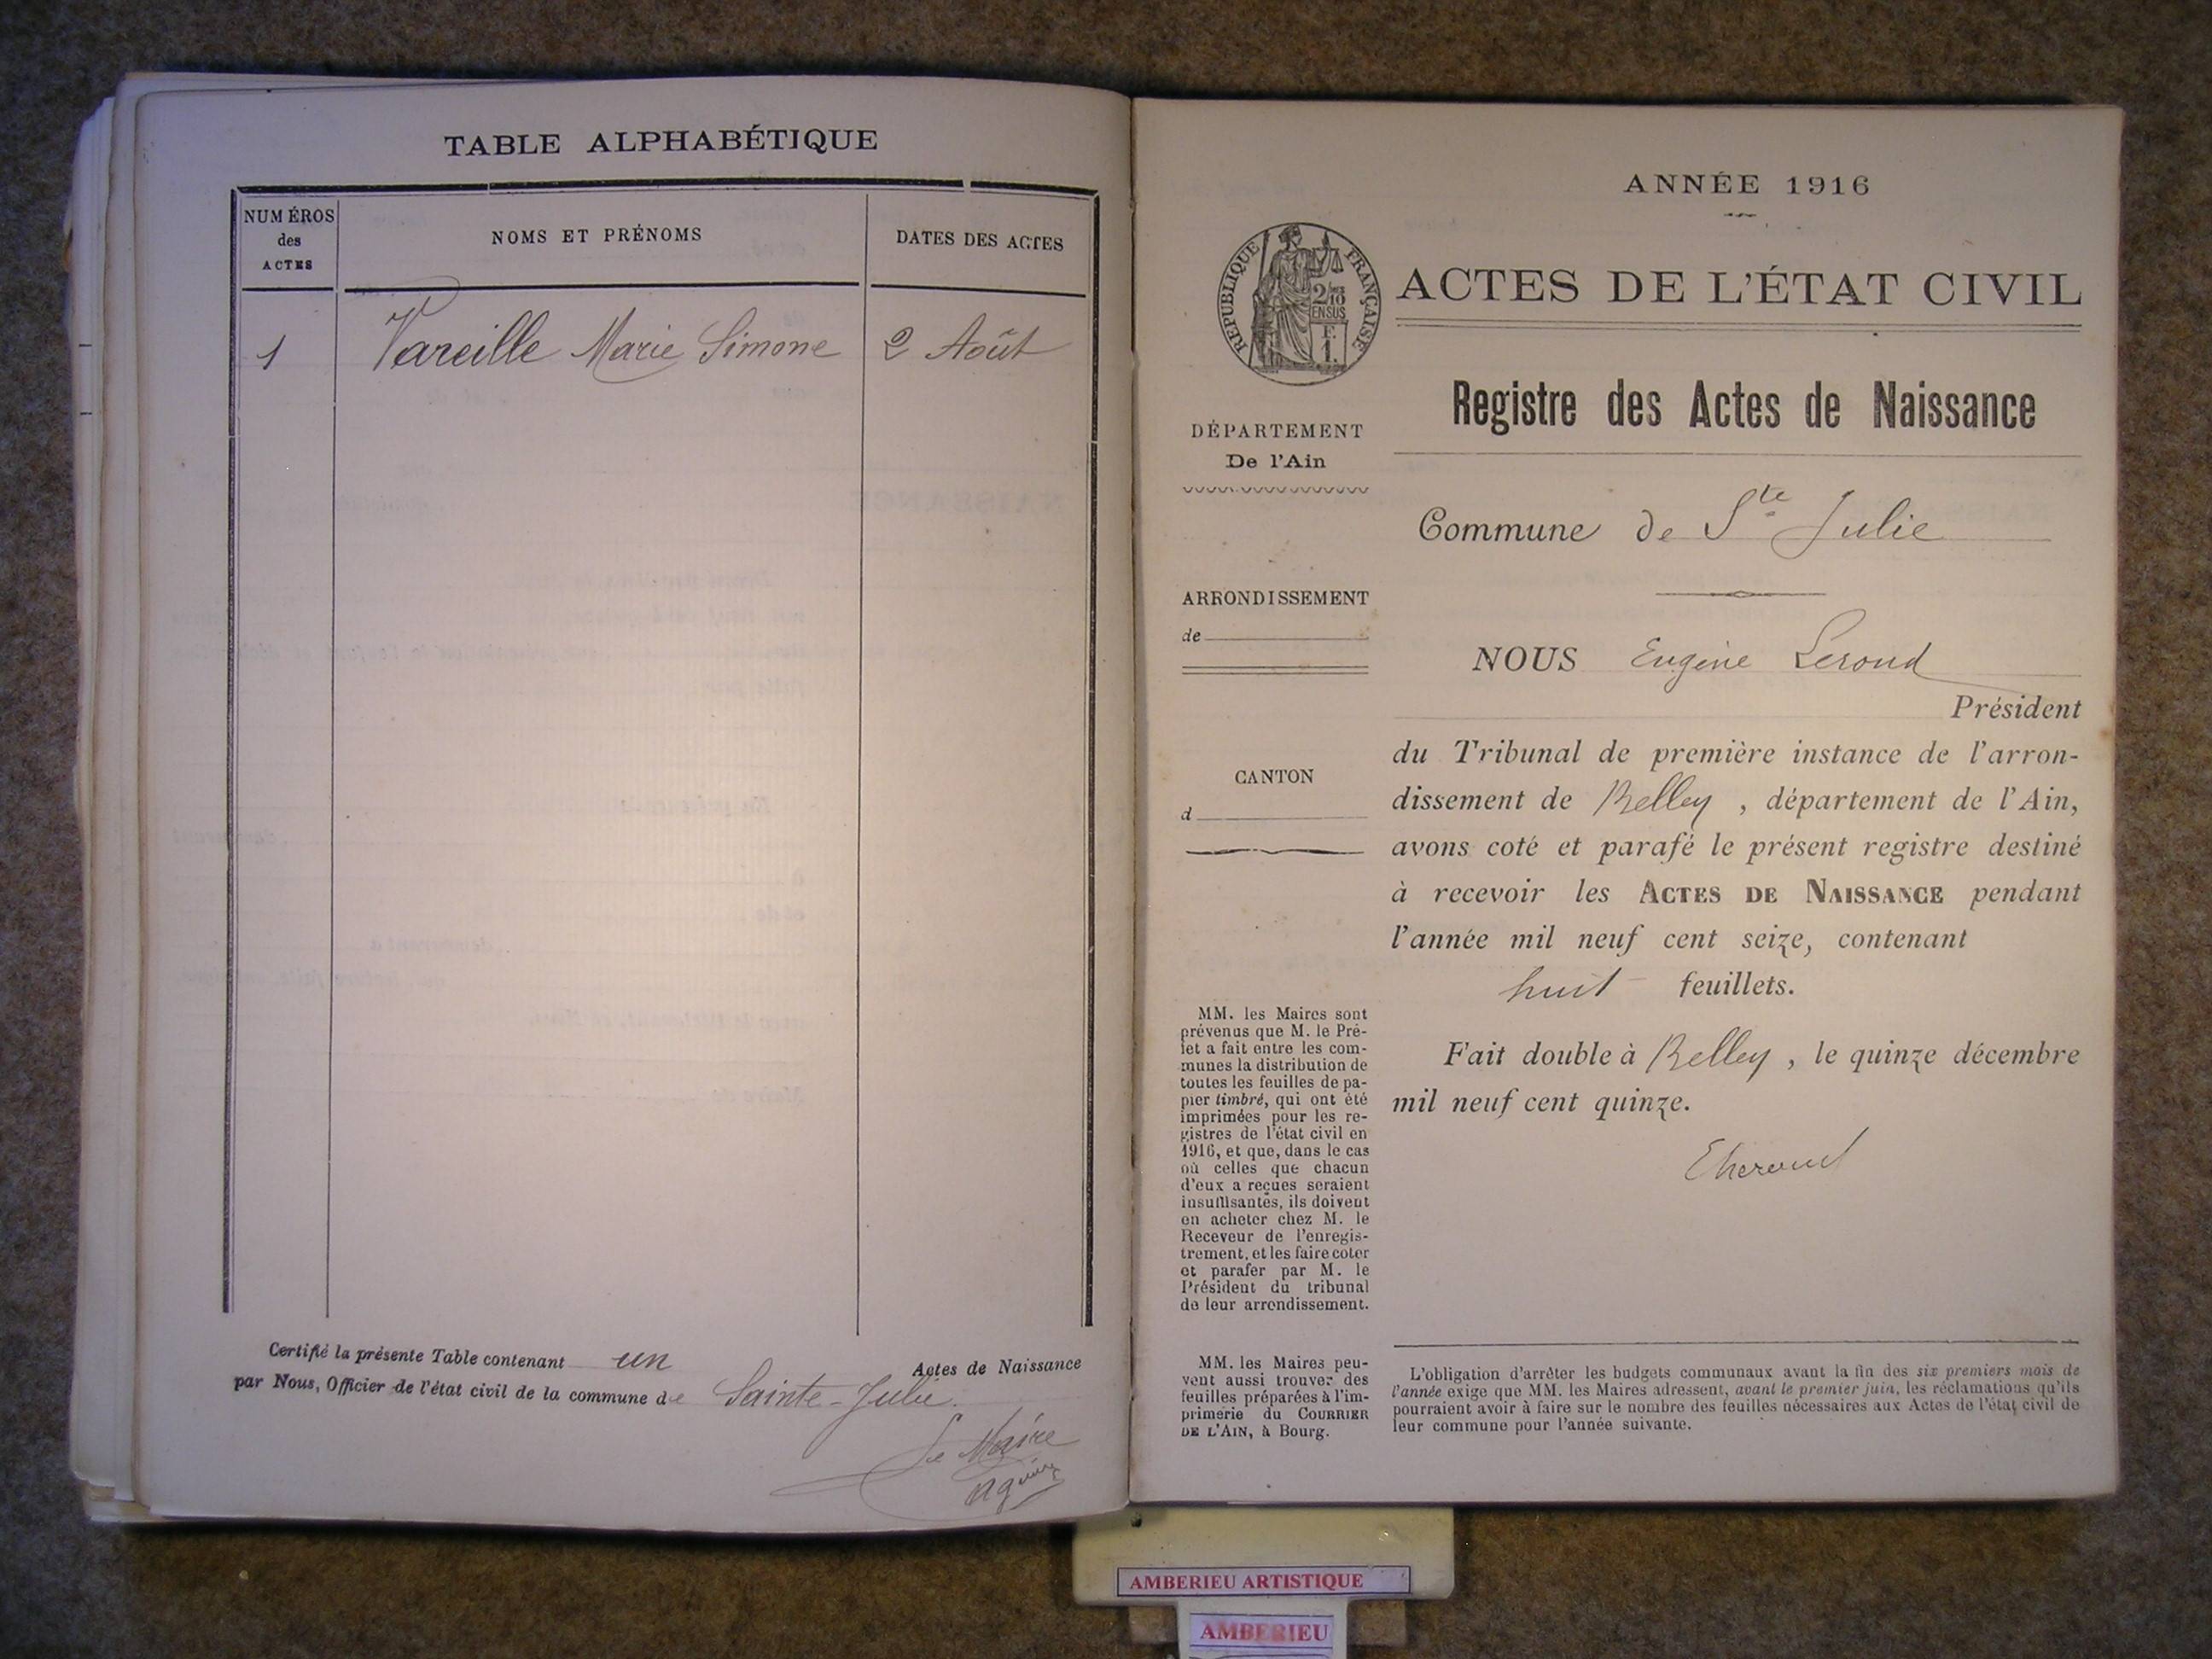 TABLE ALPHABÉTIQUE
NUMÉROS
des
ACTES
NOMS ET PRÉNOMS
DATES DES ACTES
1 Vareille Marie Simone 2 Août
Certifié la présente Table contenant un Actes de Naissance
par Nous, Officier de l'état civil de la commune de Sainte-Julie.
Le Maire
ANNÉE 1916
RÉPUBLIQUE FRANÇAISE
2/10
EN SUS
F.
1.
ACTES DE L'ÉTAT CIVIL
Registre des Actes de Naissance
DÉPARTEMENT
De l'Ain
Commune de Ste Julie
ARRONDISSEMENT
de
CANTON
d
NOUS Eugène
Président
du Tribunal de première instance de l'arron-
dissement de Belley, département de l'Ain,
avons coté et parafé le présent registre destiné
à recevoir les ACTES DE NAISSANCE pendant
l'année mil neuf cent seize, contenant
huit feuillets.
Fait double à Belley, le quinze décembre
mil neuf cent quinze.
MM. les Maires sont
prévenus que M. le Pré-
fet a fait entre les com-
munes la distribution de
toutes les feuilles de pa-
pier timbré, qui ont été
imprimées pour les re-
gistres de l'état civil en
1916, et que, dans le cas
où celles que chacun
d'eux a reçues seraient
insuffisantes, ils doivent
en acheter chez M. le
Receveur de l'enregis-
trement, et les faire coter
et parafer par M. le
Président du tribunal
de leur arrondissement.
MM. les Maires peu-
vent aussi trouver des
feuilles préparées à l'im-
primerie du COURRIER
DE L'AIN, à Bourg.
L'obligation d'arrêter les budgets communaux avant la fin des six premiers mois de
l'année exige que MM. les Maires adressent, avant le premier juin, les réclamations qu'ils
pourraient avoir à faire sur le nombre des feuilles nécessaires aux Actes de l'état civil de
leur commune pour l'année suivante.
AMBERIEU ARTISTIQUE
AMBERIEU